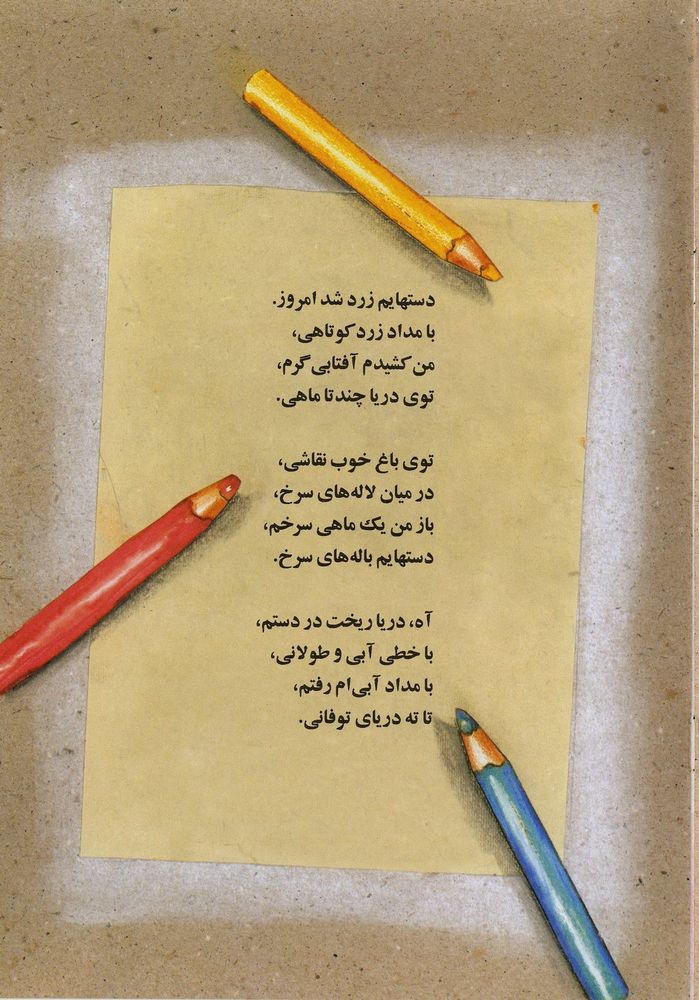 دستهایم زرد شد امروز.
با مداد زرد کوتاهی،
من کشیدم آفتابی گرم،
توی دریا چندتا ماهی.
توی باغ خوب نقاشی،
در میان لاله‌های سرخ،
باز من یک ماهی سرخم،
دستهایم باله‌های سرخ.
آه، دریا ریخت در دستم،
با خطی آبی و طولانی،
با مداد آبی‌ام رفتم،
تا ته دریای توفانی.